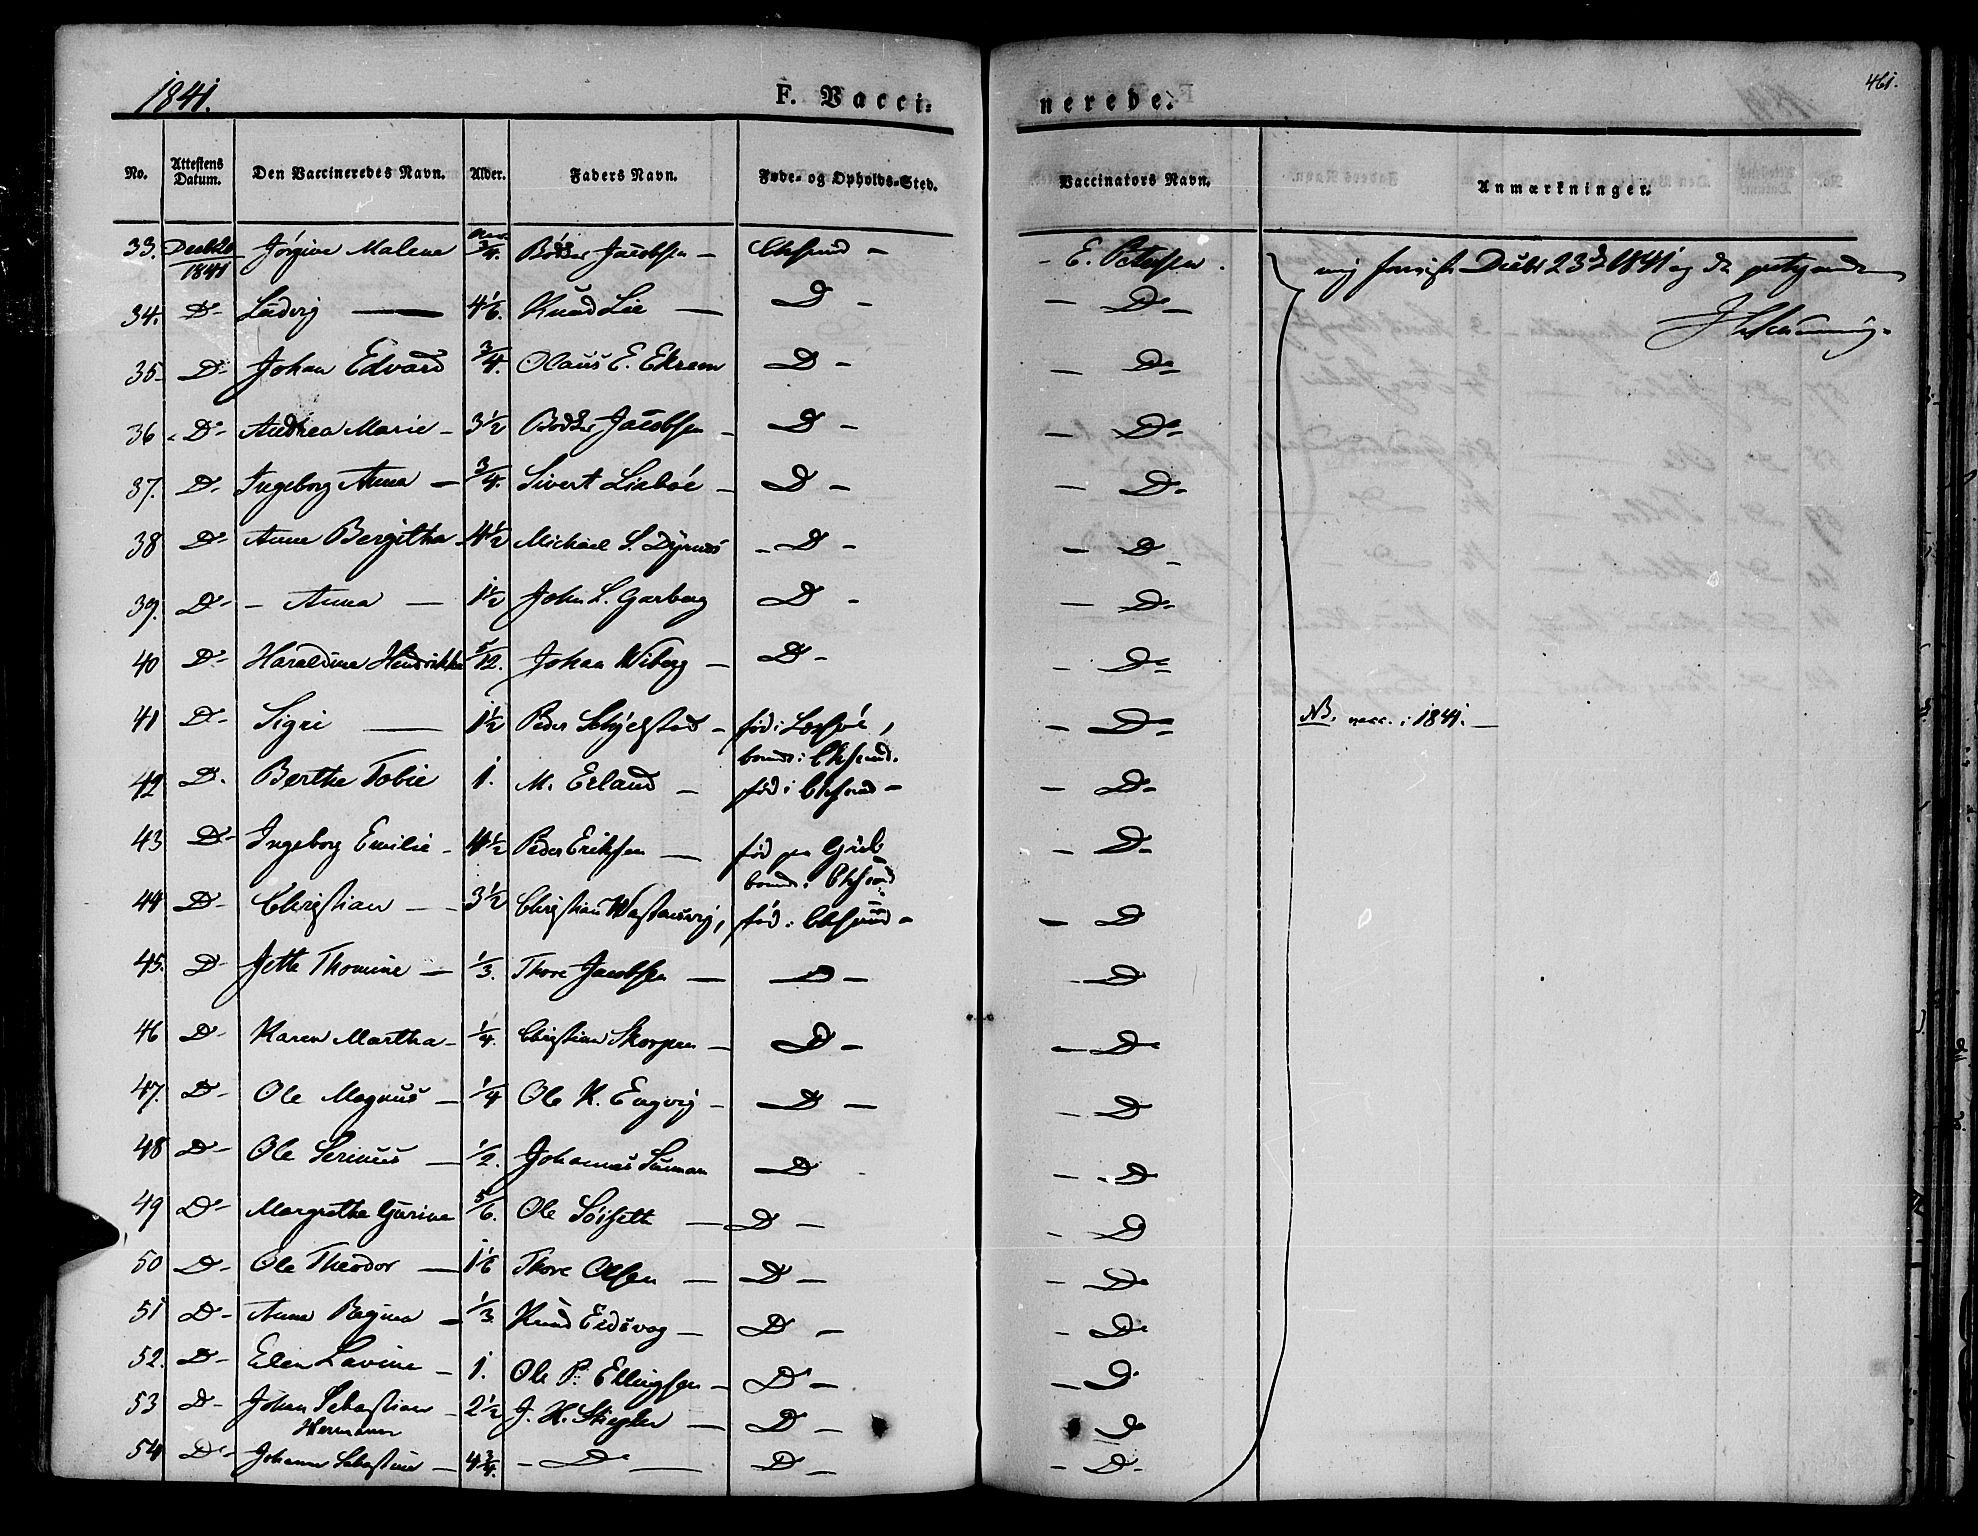 1841.
F. Vacci-
nerede.
461.
No. Attestens Datum. Den Vaccineredes Navn. Alder. Faders Navn. Føde- og Opholds-Sted. Vaccinators Navn. Anmærkninger.
33. Decbr 20 1841 Jørgine Malena 3/4. Bødker Jacobsen - Chrsund - - E. Petersen. Decbr 23d 1841 og
34. D- Ludvig - 4 1/6. Knud Lie - D - - D-
35- D- Johan Edvard 3/4. Olaus E. Ekrem D - - D-
36 - D- Andrea Marie - 3 1/2 Bødker Jacobsen - D - - D-
37. D- Ingeborg Anna - 3/4. Sivert Lixbøe - D - - D-
38 D- Anne Bergitha 4 1/2 Michael S. Dyrnes - D - - D-
39. D- - Anna - 1 1/2 John L. Garberg D - - D-
40 D- Haraldine Hendrikke 5/12. Johan Wiberg - D - - D-
41 D- Sigri - 1 1/2 Peder Schjelstad - fød i , - D- NB. vacc. i 1841. -
boende i Chrsund.
42 D- Berthe Tobie 1. M. Erland - fød i Chrsund - - D-
43 D- Ingeborg Emilie - 4 1/2 Peder Eriksen - fød paa Grib - D-
boende i Chrsund
44 D- Christian - 3 1/2 Christian fød i Chrsund - - D
45. D- Jette Thomine - 1/3. Thore Jacobsen - D - - D
46 D- Karen Martha - 1/4. Christian Skorpen - D - - D-
47. D- Ole Magnus - 1/4 Ole K. Engvig - D - - D
48 D- Ole Serinus - 1/2. Johannes D - D
49 D- Margrethe Gurine 5/6. Ole Søiseth - D - - D
50 D- Ole Theodor - 1 1/6 Thore Olsen - D - - D-
51 D- Anne Regina - 1/3. Knud Eidsvog - D - - D-
52. D- Elen Lavine - 1. Ole P. Ellingsen - D - - D
53 D- Johan Sebastian - 2 1/2 J. H. Stiegler - D - D
Hermann
54 D- Johanne Sebastine - 4 3/4. - D - D - - D-